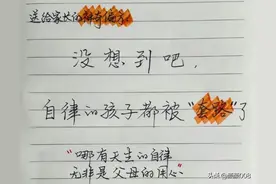 送给家长的
没想到吧，
自律的孩子都被"套路"了
"哪有天生的自律
无非是父母的用心"
头条 @娜娜008